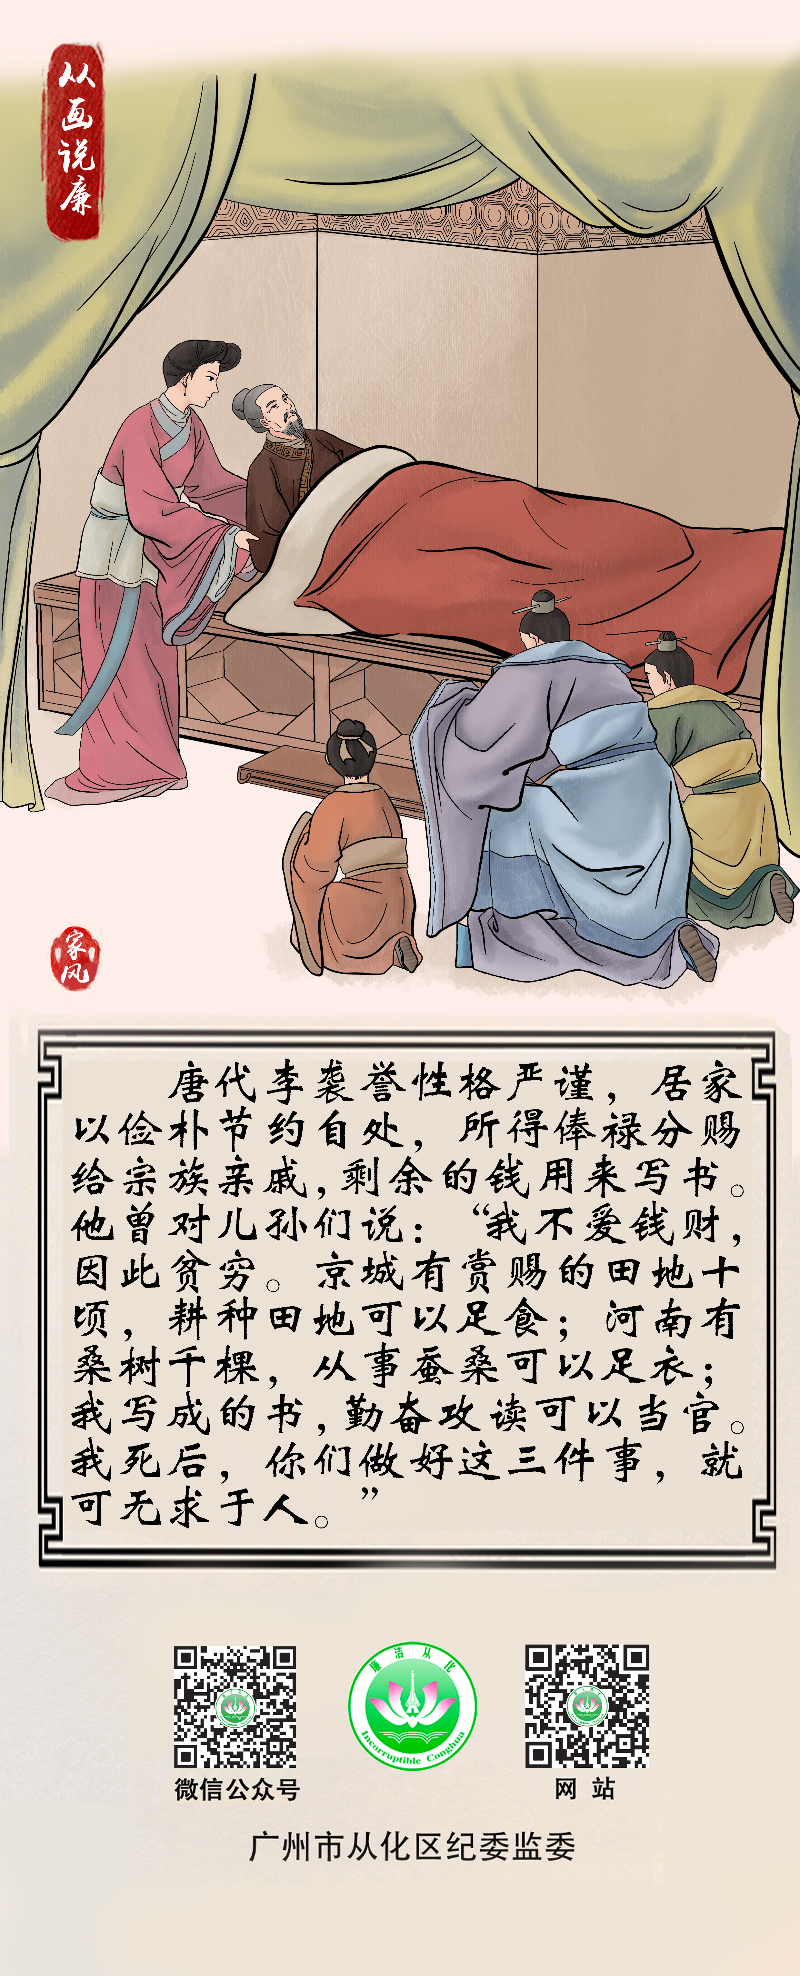 从画说廉
家风
唐代李袭誉性格严谨，居家
以俭朴节约自处，所得俸禄分赐
给宗族亲戚，剩余的钱用来写书。
他曾对儿孙们说：“我不爱钱财，
因此贫穷。京城有赏赐的田地十
顷，耕种田地可以足食；河南有
桑树千棵，从事蚕桑可以足衣；
我写成的书，勤奋攻读可以当官。
我死后，你们做好这三件事，就
可无求于人。”
廉洁从化
Incorruptible Conghua
微信公众号
网 站
广州市从化区纪委监委